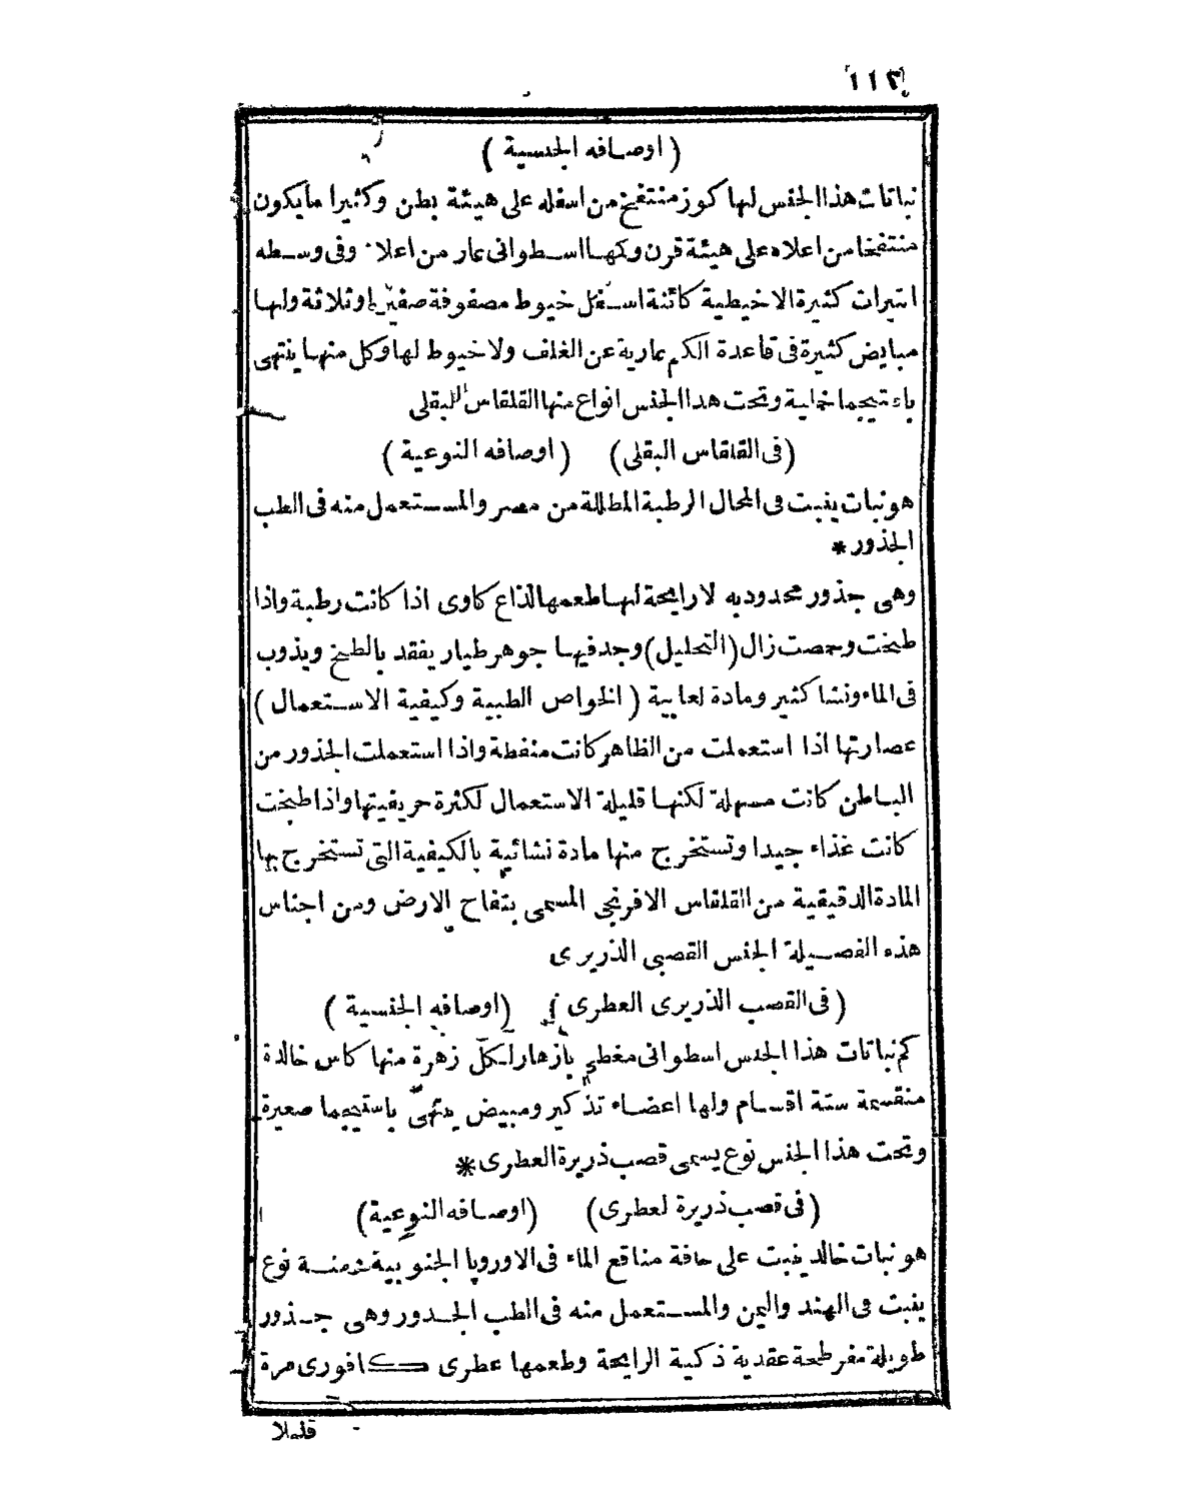 ١١٢
( اوصافه الجنسية )
نباتات هذا الجنس لها كوز منتفخ من اسفله على هيئة بطن وكثيرا ما يكون
منتفخا من اعلاه على هيئة قرن وكمها اسطوانى عار من اعلاه وفى وسطه
انتيرات كثيرة الاخيطية كائنة اسفل خيوط مصفوفة صفين او ثلاثة ولها
مبايض كثيرة فى قاعدة الكم عارية عن الغلف ولا خيوط لها وكل منها ينتهى
باستيجما خملية وتحت هذا الجنس انواع منها القلقاس البقلى
(فى القلقاس البقلى) ( اوصافه النوعية )
هو نبات ينبت فى المحال الرطبة المظللة من مصر والمستعمل منه فى الطب
الجذور *
وهى جذور محدودبه لا رايحة لها طعمها لذاع كاوى اذا كانت رطبة واذا
طبخت وحمصت زال (التحليل) وجد فيها جوهر طيار يفقد بالطبخ ويذوب
فى الماء ونشا كثير ومادة لعابية ( الخواص الطبية وكيفية الاستعمال )
عصارتها اذا استعملت من الظاهر كانت منفطة واذا استعملت الجذور من
الباطن كانت مسهلة لكنها قليلة الاستعمال لكثرة حريفيتها واذا طبخت
كانت غذاء جيدا وتستخرج منها مادة نشائية بالكيفية التى تستخرج بها
المادة الدقيقية من القلقاس الافرنجى المسمى بتفاح الارض ومن اجناس
هذه الفصيلة الجنس القصبى الذريرى
( فى القصب الذريرى العطرى ) (اوصافه الجنسية )
كم نباتات هذا الجنس اسطوانى مغطى بازهار لكل زهرة منها كاس خالدة
منقسمة ستة اقسام ولها اعضاء تذكير ومبيض ينتهى باستيجما صغيرة
وتحت هذا الجنس نوع يسمى قصب ذريرة العطرى *
( فى قصب ذريرة لعطرى ) (اوصافه النوعية)
هو نبات خالد ينبت على حافة مناقع الماء فى الاوروپا الجنوبية ومنه نوع
ينبت فى الهند واليمن والمستعمل منه فى الطب الجدور وهى جذور
طويلة مفرطحة عقدية ذكية الرايحة وطعمها عطرى كافورى مرة
قليلا